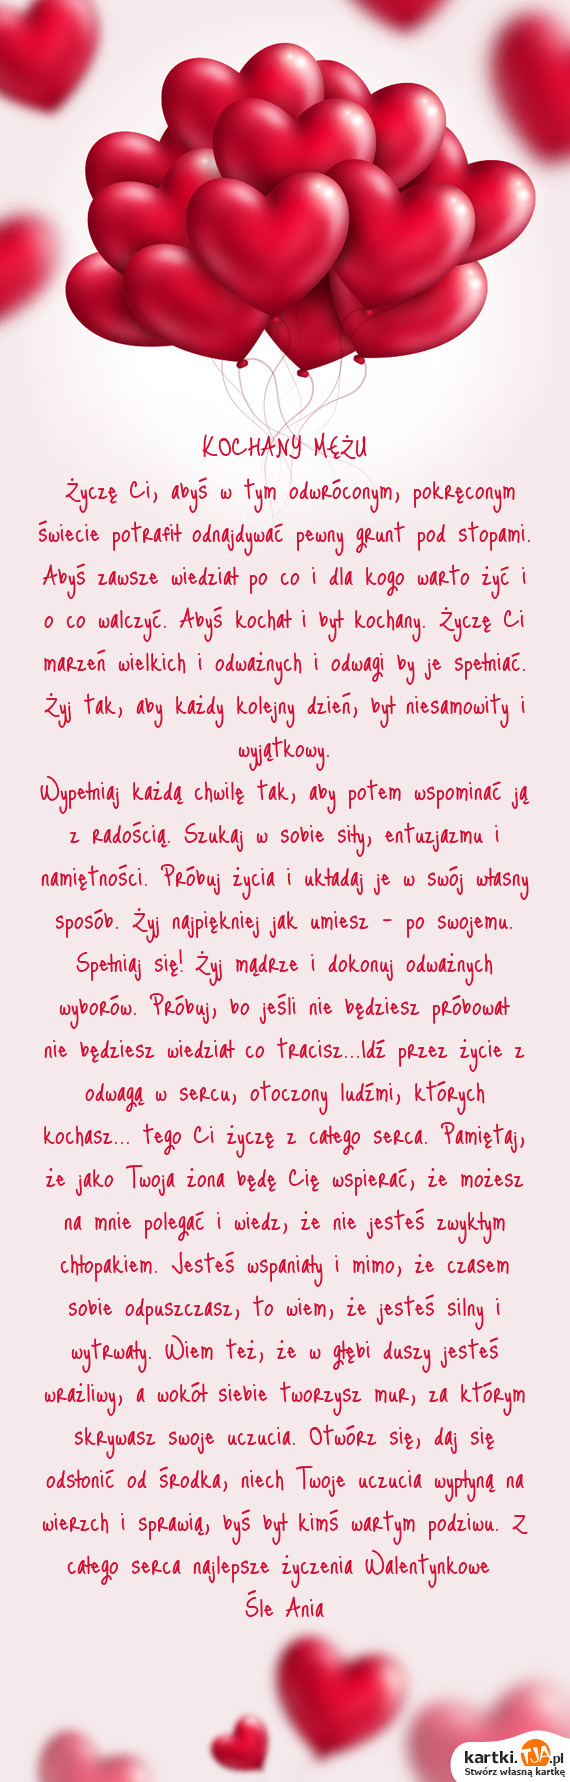 KOCHANY MĘŻU
Życzę Ci, abyś w tym odwróconym, pokręconym
świecie potrafił odnajdywać pewny grunt pod stopami.
Abyś zawsze wiedział po co i dla kogo warto żyć i
o co walczyć. Abyś kochał i był kochany. Życzę Ci
marzeń wielkich i odważnych i odwagi by je spełniać.
Żyj tak, aby każdy kolejny dzień, był niesamowity i
wyjątkowy.
Wypełniaj każdą chwilę tak, aby potem wspominać ją
z radością. Szukaj w sobie siły, entuzjazmu i
namiętności. Próbuj życia i układaj je w swój własny
sposób. Żyj najpiękniej jak umiesz - po swojemu.
Spełniaj się! Żyj mądrze i dokonuj odważnych
wyborów. Próbuj, bo jeśli nie będziesz próbował
nie będziesz wiedział co tracisz...Idź przez życie z
odwagą w sercu, otoczony ludźmi, których
kochasz... tego Ci życzę z całego serca. Pamiętaj,
że jako Twoja żona będę Cię wspierać, że możesz
na mnie polegać i wiedz, że nie jesteś zwykłym
chłopakiem. Jesteś wspaniały i mimo, że czasem
sobie odpuszczasz, to wiem, że jesteś silny i
wytrwały. Wiem też, że w głębi duszy jesteś
wrażliwy, a wokół siebie tworzysz mur, za którym
skrywasz swoje uczucia. Otwórz się, daj się
odsłonić od środka, niech Twoje uczucia wypłyną na
wierzch i sprawią, byś był kimś wartym podziwu. Z
całego serca najlepsze życzenia Walentynkowe
Śle Ania
kartki.TJA.pl
Stwórz własną kartkę